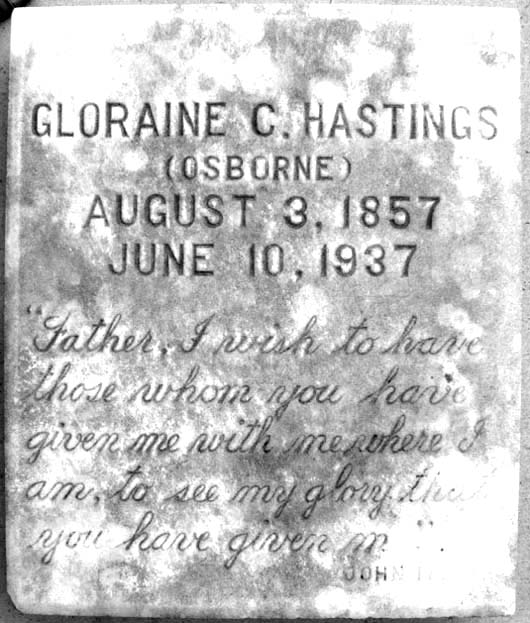 GLORAINE C. HASTINGS
(OSBORNE)
AUGUST 3, 1857
JUNE 10, 1937
"Father, I wish to have
those whom you have
given me with me where I
am, to see my glory that
you have given m ".
JOHN